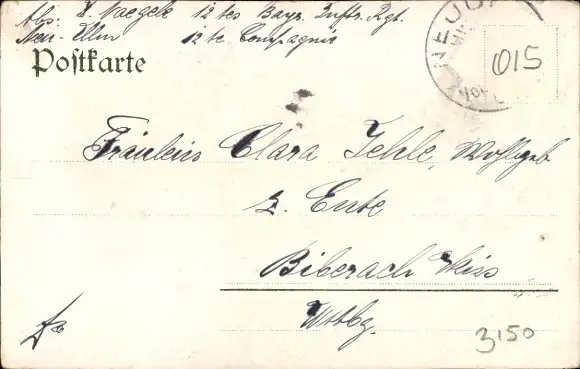 Abs: X. Naegele 12tes Bayr. Inftr. Rgt.
Neu-Ulm 12te Compagnie
Postkarte
NEU
015
Fräulein Clara Jehle, Wohlgeb
z. Ente
Biberach Riss
Wttbg.
3150